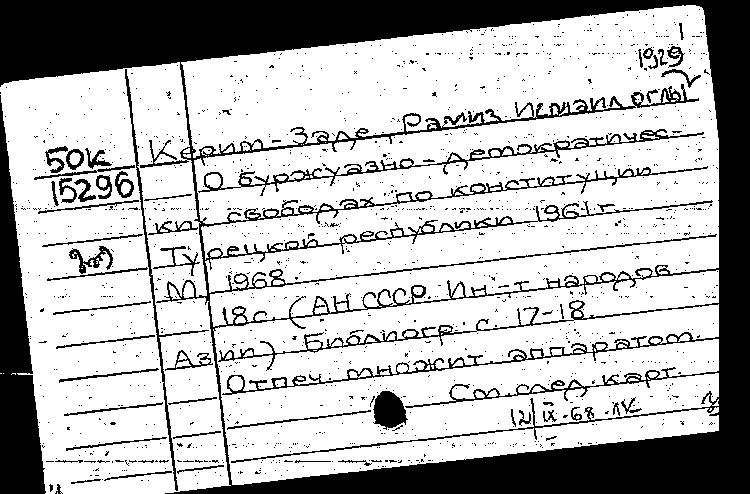 1
1929
Керим-Заде, Рамиз Исмаил оглы
50к
15296
О буржуазно-демократичес-
ких свободах по конституции
Турецкой республики 1961 г.
М, 1968.
18с. (АН СССР. Ин-т народов
Азии) Библиогр: с. 17-18.
Отпеч. множит. аппаратом.
См. след. карт.
12/IX-68